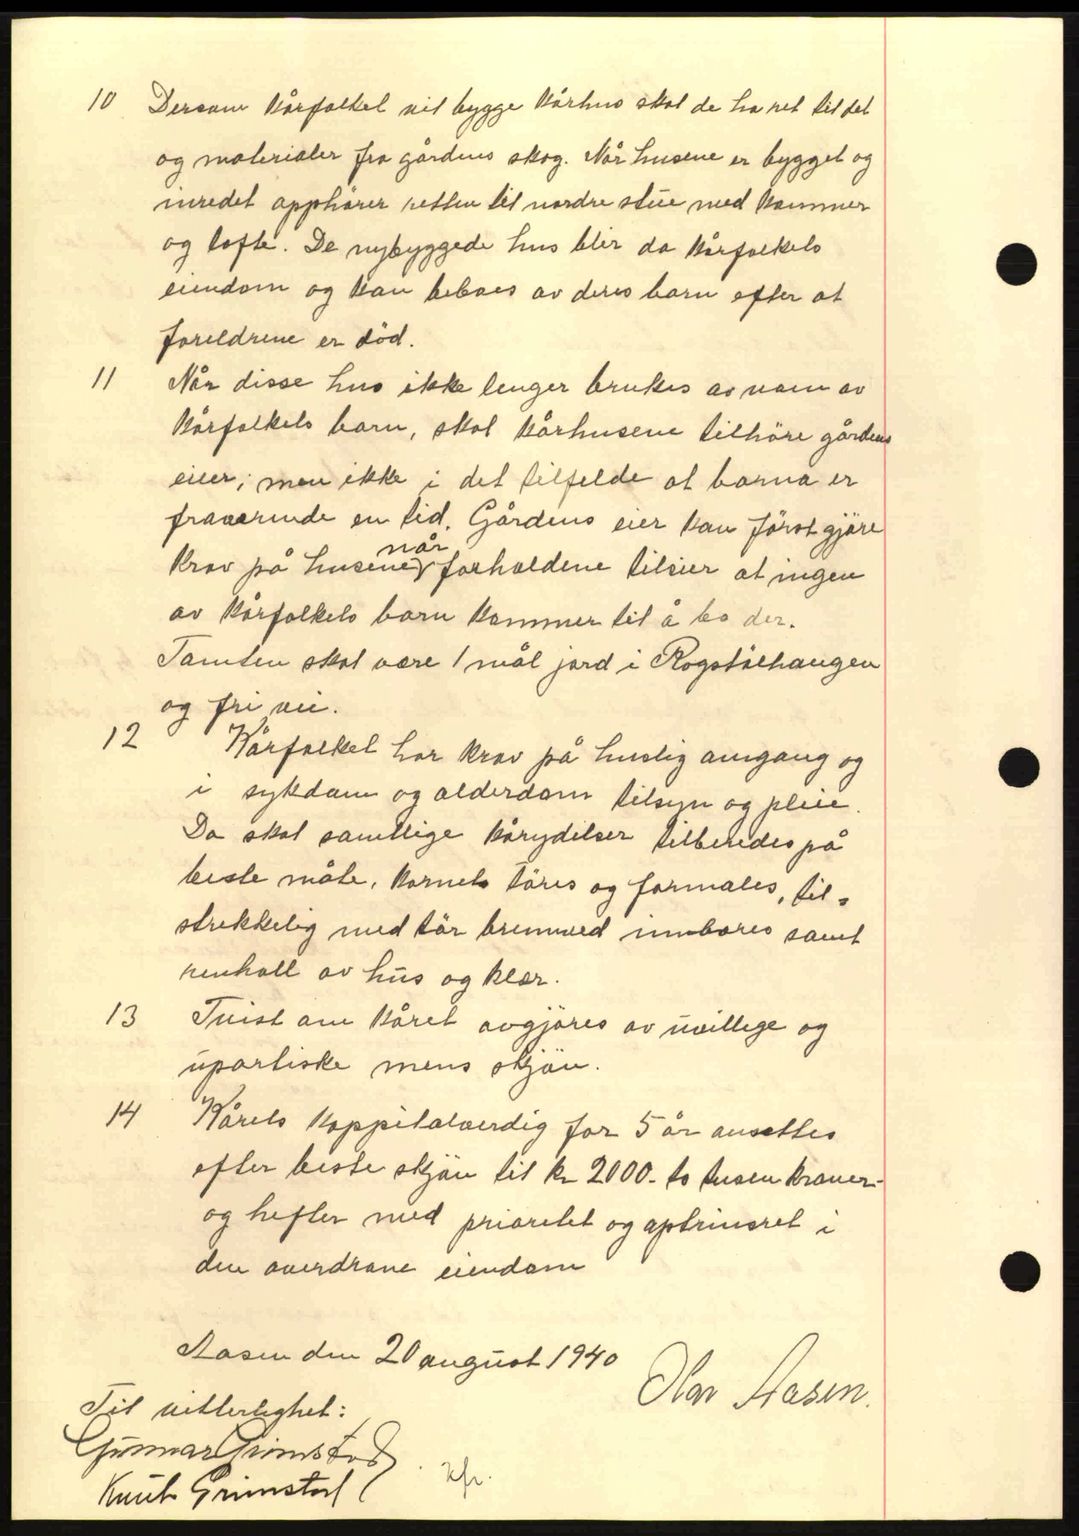 10 Dersom kårfolket vil bygge kårhus skal de ha ret til det
og materialer fra gårdens skog. Når husene er bygget og
inredet opphörer retten til nordre stue med kammer
og lofte. De nybyggede hus blir da kårfolkets
eiendom og kan beboes av deres barn efter at
foreldrene er död.
11 Når disse hus ikke lenger brukes av noen av
kårfolkets barn, skal kårhusene tilhöre gårdens
eier; men ikke i det tilfelde at barna er
fraværende en tid. Gårdens eier kan först gjöre
krav på husene når forholdene tilsier at ingen
av kårfolkets barn kommer til å bo der.
Tomten skal være 1 mål jord i Rogstölhaugen
og fri vei.
12 Kårfolket har krav på huslig omgang og
i sykdom og alderdom tilsyn og pleie.
Da skal samtlige kårydelser tilberedes på
beste måte, kornet töres og formales, til-
strekkelig med tör brenved innbæres samt
renholt av hus og klær.
13 Tvist om kåret avgjöres av uvillige og
upartiske mens skjön.
14 Kårets kappitalverdig for 5 år ansettes
efter beste skjön til kr 2000.- to tusen kroner-
og hefter med prioretet og optrinsret i
den overdrane eiendom
Aasen den 20 august 1940
Olav Aasen.
Til vitterlighet:
Gunnar Grimstad
Knut Grimstad